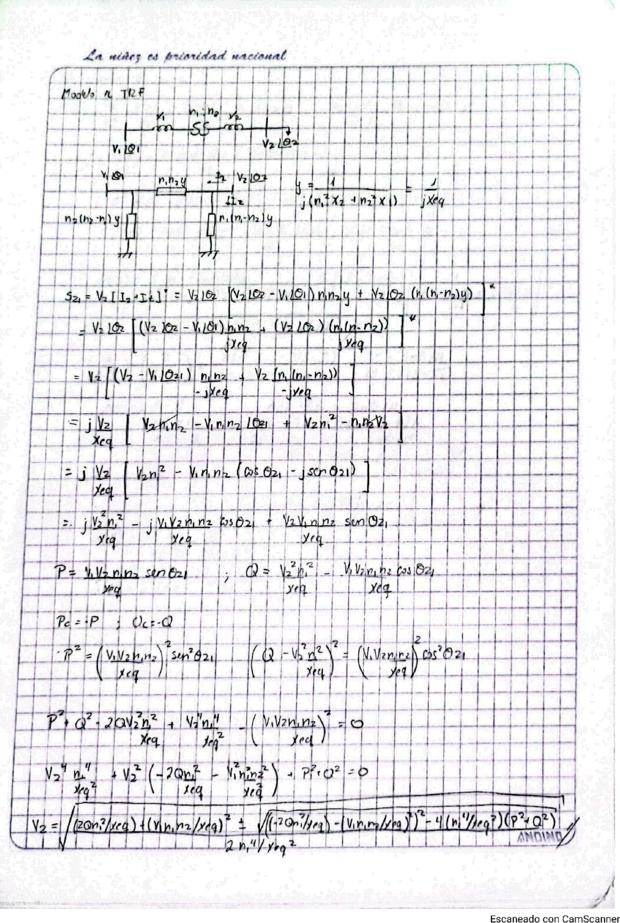 La niñez es prioridad nacional
Modelo π TRF
x₁ n₁:n₂ x₂
V₁∠θ1 V₂∠θ2
V₁∠θ1 n₁n₂y I₂ V₂∠θ2
n₂(n₂-n₁)y n₁(n₁-n₂)y
y = 1/(j(n₁²x₂ + n₂²x₁)) = 1/(jxeq)
= V₂∠θ2 [(V₂∠θ2 - V₁∠θ1) n₁n₂/(jxeq) + (V₂∠θ2)(n₁(n₁-n₂))/(jxeq)]*
= V₂[(V₂ - V₁∠θ21) n₁n₂/(-jxeq) + V₂(n₁(n₁-n₂))/(-jxeq)]
= j V₂/xeq [V₂n₁n₂ - V₁n₁n₂∠θ21 + V₂n₁² - n₁n₂V₂]
= j V₂/xeq [V₂n₁² - V₁n₁n₂ (cosθ21 - jsenθ21)]
= j V₂²n₁²/xeq - j V₁V₂n₁n₂/xeq cosθ21 + V₂V₁n₁n₂/xeq senθ21
P = V₁V₂n₁n₂/xeq senθ21 ; Q = V₂²n₁²/xeq - V₁V₂n₁n₂/xeq cosθ21
Pc = -P ; Qc = -Q
P² = (V₁V₂n₁n₂/xeq)² sen²θ21 (Q - V₂²n₁²/xeq)² = (V₁V₂n₁n₂/xeq)² cos²θ21
P² + Q² - 2QV₂²n₁²/xeq + V₂⁴n₁⁴/xeq² - (V₁V₂n₁n₂/xeq)² = 0
V₂⁴ n₁⁴/xeq² + V₂² (-2Qn₁²/xeq - V₁²n₁²n₂²/xeq²) + P²+Q² = 0
V₂ = √(((2Qn₁²/xeq) + (V₁n₁n₂/xeq)² ± √((-2Qn₁²/xeq) - (V₁n₁n₂/xeq)²)² - 4(n₁⁴/xeq²)(P²+Q²))/(2n₁⁴/xeq²))
ANDINO
Escaneado con CamScanner